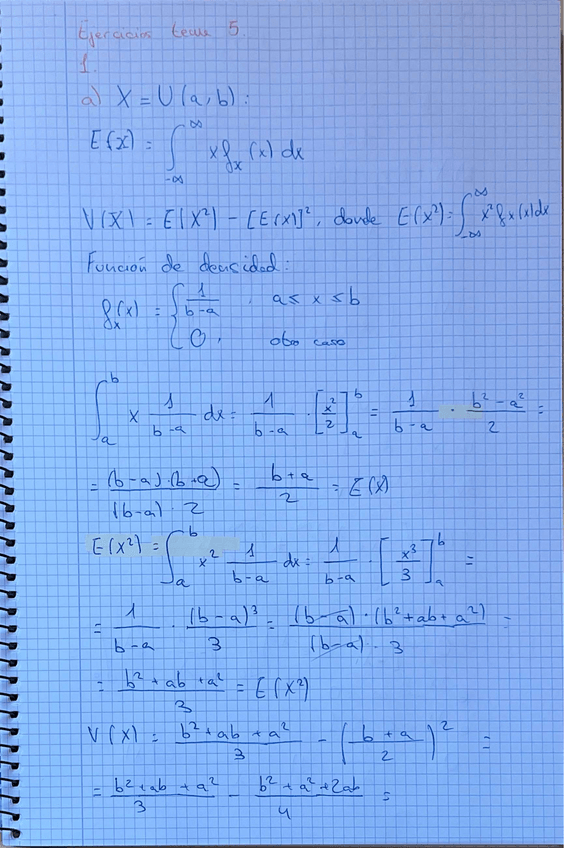 Ejercicios tema 5.
1.
a) X = U(a,b):
E(x) = ∫_{-∞}^{∞} x f_x(x) dx
V(X) = E(X²) - [E(x)]², donde E(x²) = ∫_{-∞}^{∞} x² f_x(x) dx
Función de densidad:
f_x(x) = { 1/(b-a), a ≤ x ≤ b
0, otro caso
∫_a^b x 1/(b-a) dx = 1/(b-a) · [x²/2]_a^b = 1/(b-a) · (b²-a²)/2 =
= (b-a)·(b+a)/((b-a)·2) = (b+a)/2 = E(X)
E(X²) = ∫_a^b x² 1/(b-a) dx = 1/(b-a) · [x³/3]_a^b =
= 1/(b-a) · (b-a)³/3 = (b-a)·(b²+ab+a²)/((b-a)·3) =
= (b²+ab+a²)/3 = E(X²)
V(X) = (b²+ab+a²)/3 - ((b+a)/2)² =
= (b²+ab+a²)/3 - (b²+a²+2ab)/4 =